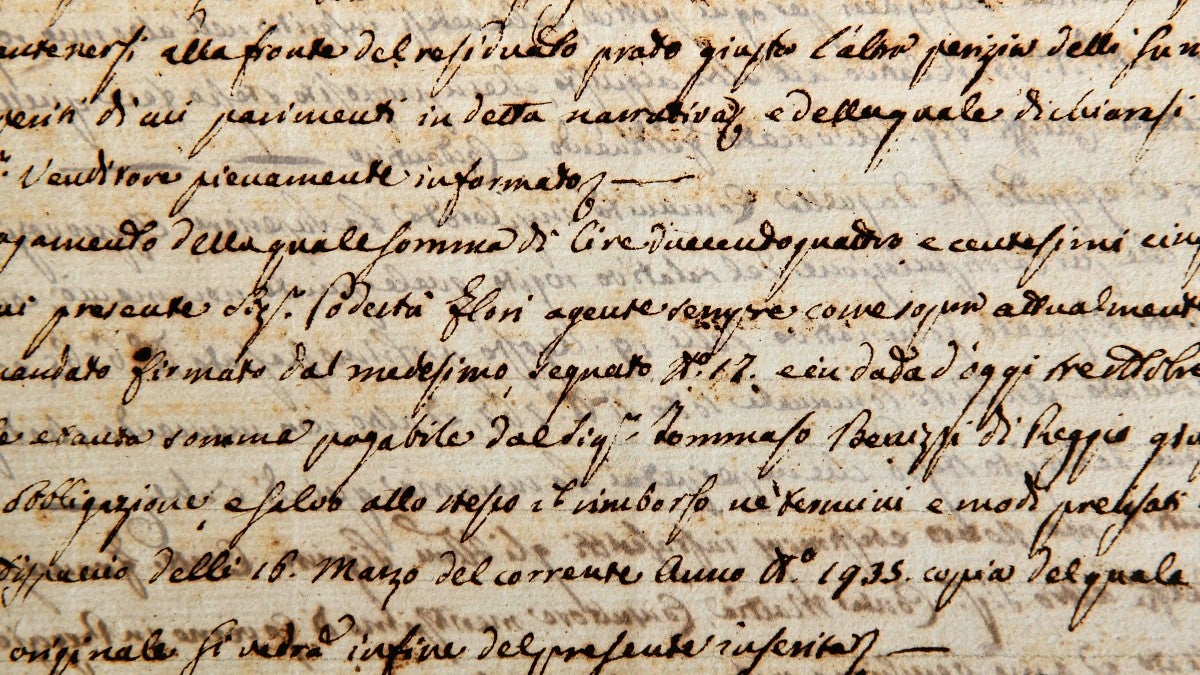 antenersi alla fronte del residuato prato giusta l'altra perizia delli Su
periti di cui parimenti in detta narrativa, e della quale dichiarasi
Venditore pienamente informato
agamento della quale somma di Lire duecentoquattro e centesimi cinq
ui presente Sigr. Podestà Flori agente sempre come sopra attualment
mandato firmato dal medesimo, segnato No. 17. e in dada d'oggi tre Ottobre
e tanta somma pagabile dal Sigr. Tommaso di Reggio giu
Obbligazione, e salvo allo stesso il rimborso ne' termini e modi precisati
Dispaccio delli 16. Marzo del corrente Anno No. 1935. copia del quale
originale si vedrà infine del presente inserita